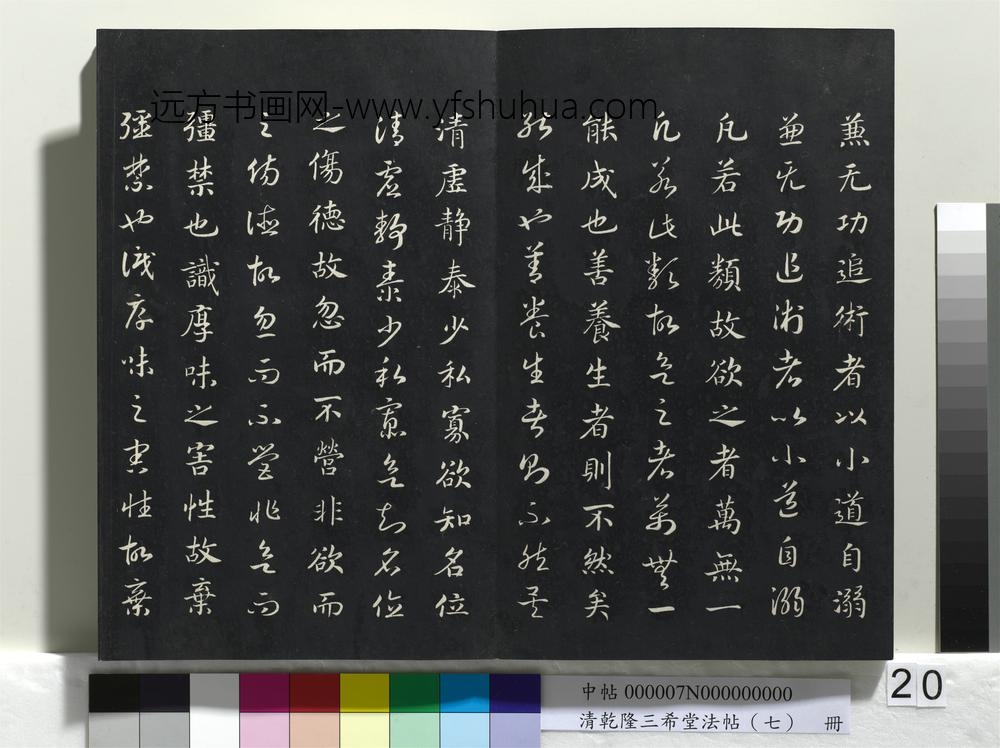 兼无功追術者以小道自溺
兼无功追術者以小道自溺
凡若此類故欲之者萬無一
凡若此類故欲之者萬無一
能成也善養生者則不然矣
能成也善養生者則不然矣
清虛静泰少私寡欲知名位
清虛静泰少私寡欲知名位
之傷德故忽而不營非欲而
之傷德故忽而不營非欲而
彊禁也識厚味之害性故棄
彊禁也識厚味之害性故棄
远方书画网-www.yfshuhua.com
中帖 000007N000000000
清乾隆三希堂法帖（七） 冊
20